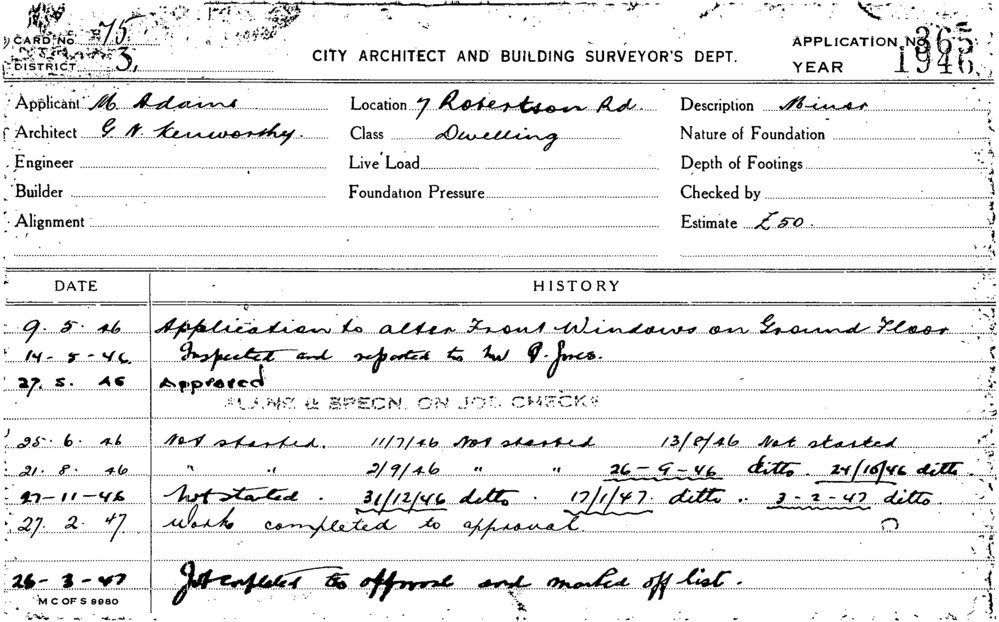 CARD No. 75
DISTRICT 3,
CITY ARCHITECT AND BUILDING SURVEYOR'S DEPT.
APPLICATION No 365
YEAR 1946
Applicant M Adams Location 7 Robertson Rd. Description Minor
Architect G. N. Kenworthy. Class Dwelling Nature of Foundation
Engineer Live Load Depth of Footings
Builder Foundation Pressure Checked by
Alignment Estimate £50.
DATE HISTORY
9. 5. 46 Application to alter Front Windows on Ground Floor
14-5-46 Inspected and reported to Mr P. Jones.
27. 5. 46 Approved
PLANS & SPECN. ON JOB CHECK
25. 6. 46 Not started. 11/7/46 Not started 13/8/46 Not started
21. 8. 46 " " 2/9/46 " " 26-9-46 ditto. 24/10/46 ditto.
27-11-46 Not started. 31/12/46 ditto. 17/1/47. ditto .. 3-2-47 ditto.
27. 2. 47 Work completed to approval.
26-3-47 Job completed to approval and marked off list.
M C OF S 9980